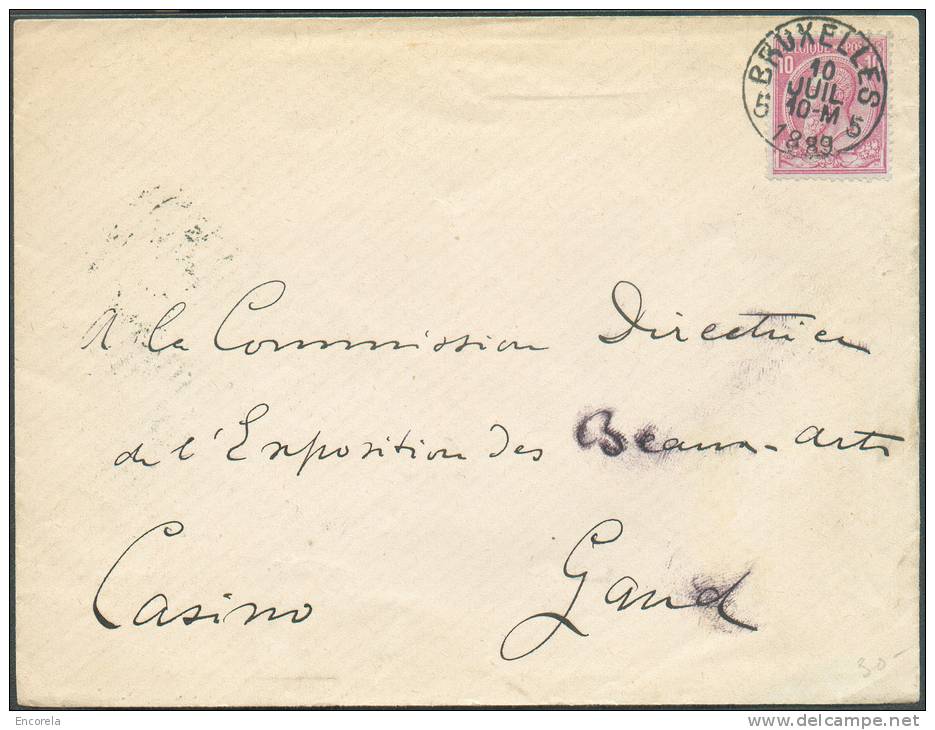 BRUXELLES
5 5
10
JUIL
10-M
1889
BELGIQUE POSTES
10 10
A la Commission Directrice
de l'Exposition des Beaux-Arts
Casino Gand
30-
Encorela
www.delcampe.net